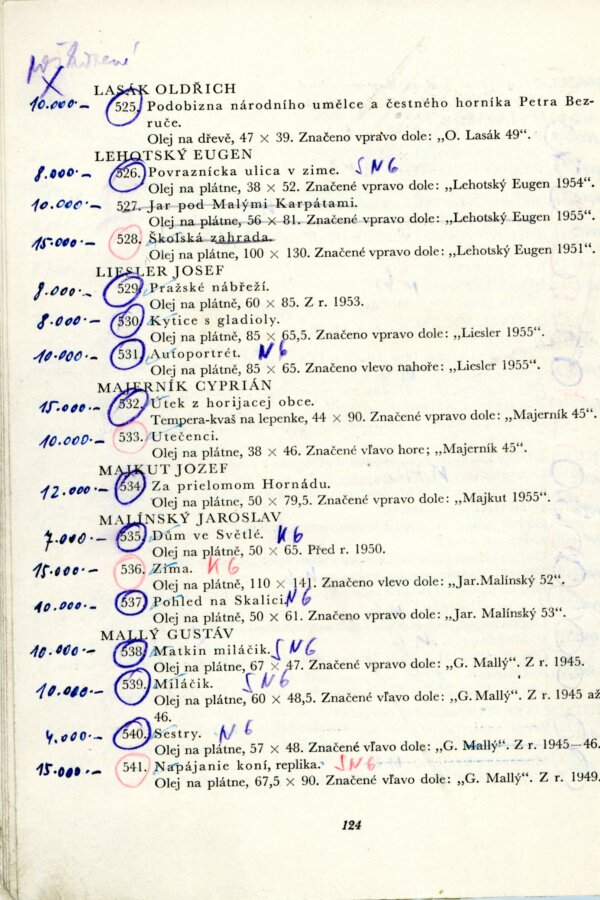 X LASÁK OLDŘICH
10.000·– 525. Podobizna národního umělce a čestného horníka Petra Bez-
ruče.
Olej na dřevě, 47 × 39. Značeno vpravo dole: „O. Lasák 49“.
LEHOTSKÝ EUGEN
8.000·– 526. Povraznícka ulica v zime. SNG
Olej na plátne, 38 × 52. Značené vpravo dole: „Lehotský Eugen 1954“.
10.000·– 527. Jar pod Malými Karpátami.
Olej na plátne, 56 × 81. Značené vpravo dole: „Lehotský Eugen 1955“.
15.000·– 528. Školská zahrada.
Olej na plátne, 100 × 130. Značené vpravo dole: „Lehotský Eugen 1951“.
LIESLER JOSEF
8.000·– 529. Pražské nábřeží.
Olej na plátně, 60 × 85. Z r. 1953.
8.000·– 530. Kytice s gladioly.
Olej na plátně, 85 × 65,5. Značeno vpravo dole: „Liesler 1955“.
10.000·– 531. Autoportrét. NG
Olej na plátně, 85 × 65. Značeno vlevo nahoře: „Liesler 1955“.
MAJERNÍK CYPRIÁN
15.000·– 532. Útek z horijacej obce.
Tempera-kvaš na lepenke, 44 × 90. Značené vpravo dole: „Majerník 45“.
10.000·– 533. Utečenci.
Olej na plátne, 38 × 46. Značené vľavo hore; „Majerník 45“.
MAJKUT JOZEF
12.000·– 534. Za prielomom Hornádu.
Olej na plátne, 50 × 79,5. Značené vpravo dole: „Majkut 1955“.
MALÍNSKÝ JAROSLAV
7.000·– 535. Dům ve Světlé. KG
Olej na plátně, 50 × 65. Před r. 1950.
15.000·– 536. Zima. KG
Olej na plátně, 110 × 141. Značeno vlevo dole: „Jar.Malínský 52“.
10.000·– 537. Pohled na Skalici. NG
Olej na plátně, 50 × 61. Značeno vpravo dole: „Jar. Malínský 53“.
MALLÝ GUSTÁV
10.000·– 538. Matkin miláčik. SNG
Olej na plátne, 67 × 47. Značené vpravo dole: „G. Mallý“. Z r. 1945.
10.000·– 539. Miláčik. SNG
Olej na plátne, 60 × 48,5. Značené vľavo dole: „G. Mallý“. Z r. 1945 až
46.
4.000·– 540. Sestry. NG
Olej na plátne, 57 × 48. Značené vľavo dole: „G. Mallý“. Z r. 1945—46.
15.000·– 541. Napájanie koní, replika. SNG
Olej na plátne, 67,5 × 90. Značené vľavo dole: „G. Mallý“. Z r. 1949.
124